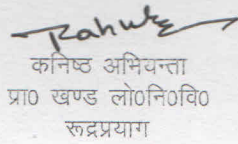 Rahul
कनिष्ठ अभियन्ता
प्रा0 खण्ड लो0नि0वि0
रूद्रप्रयाग